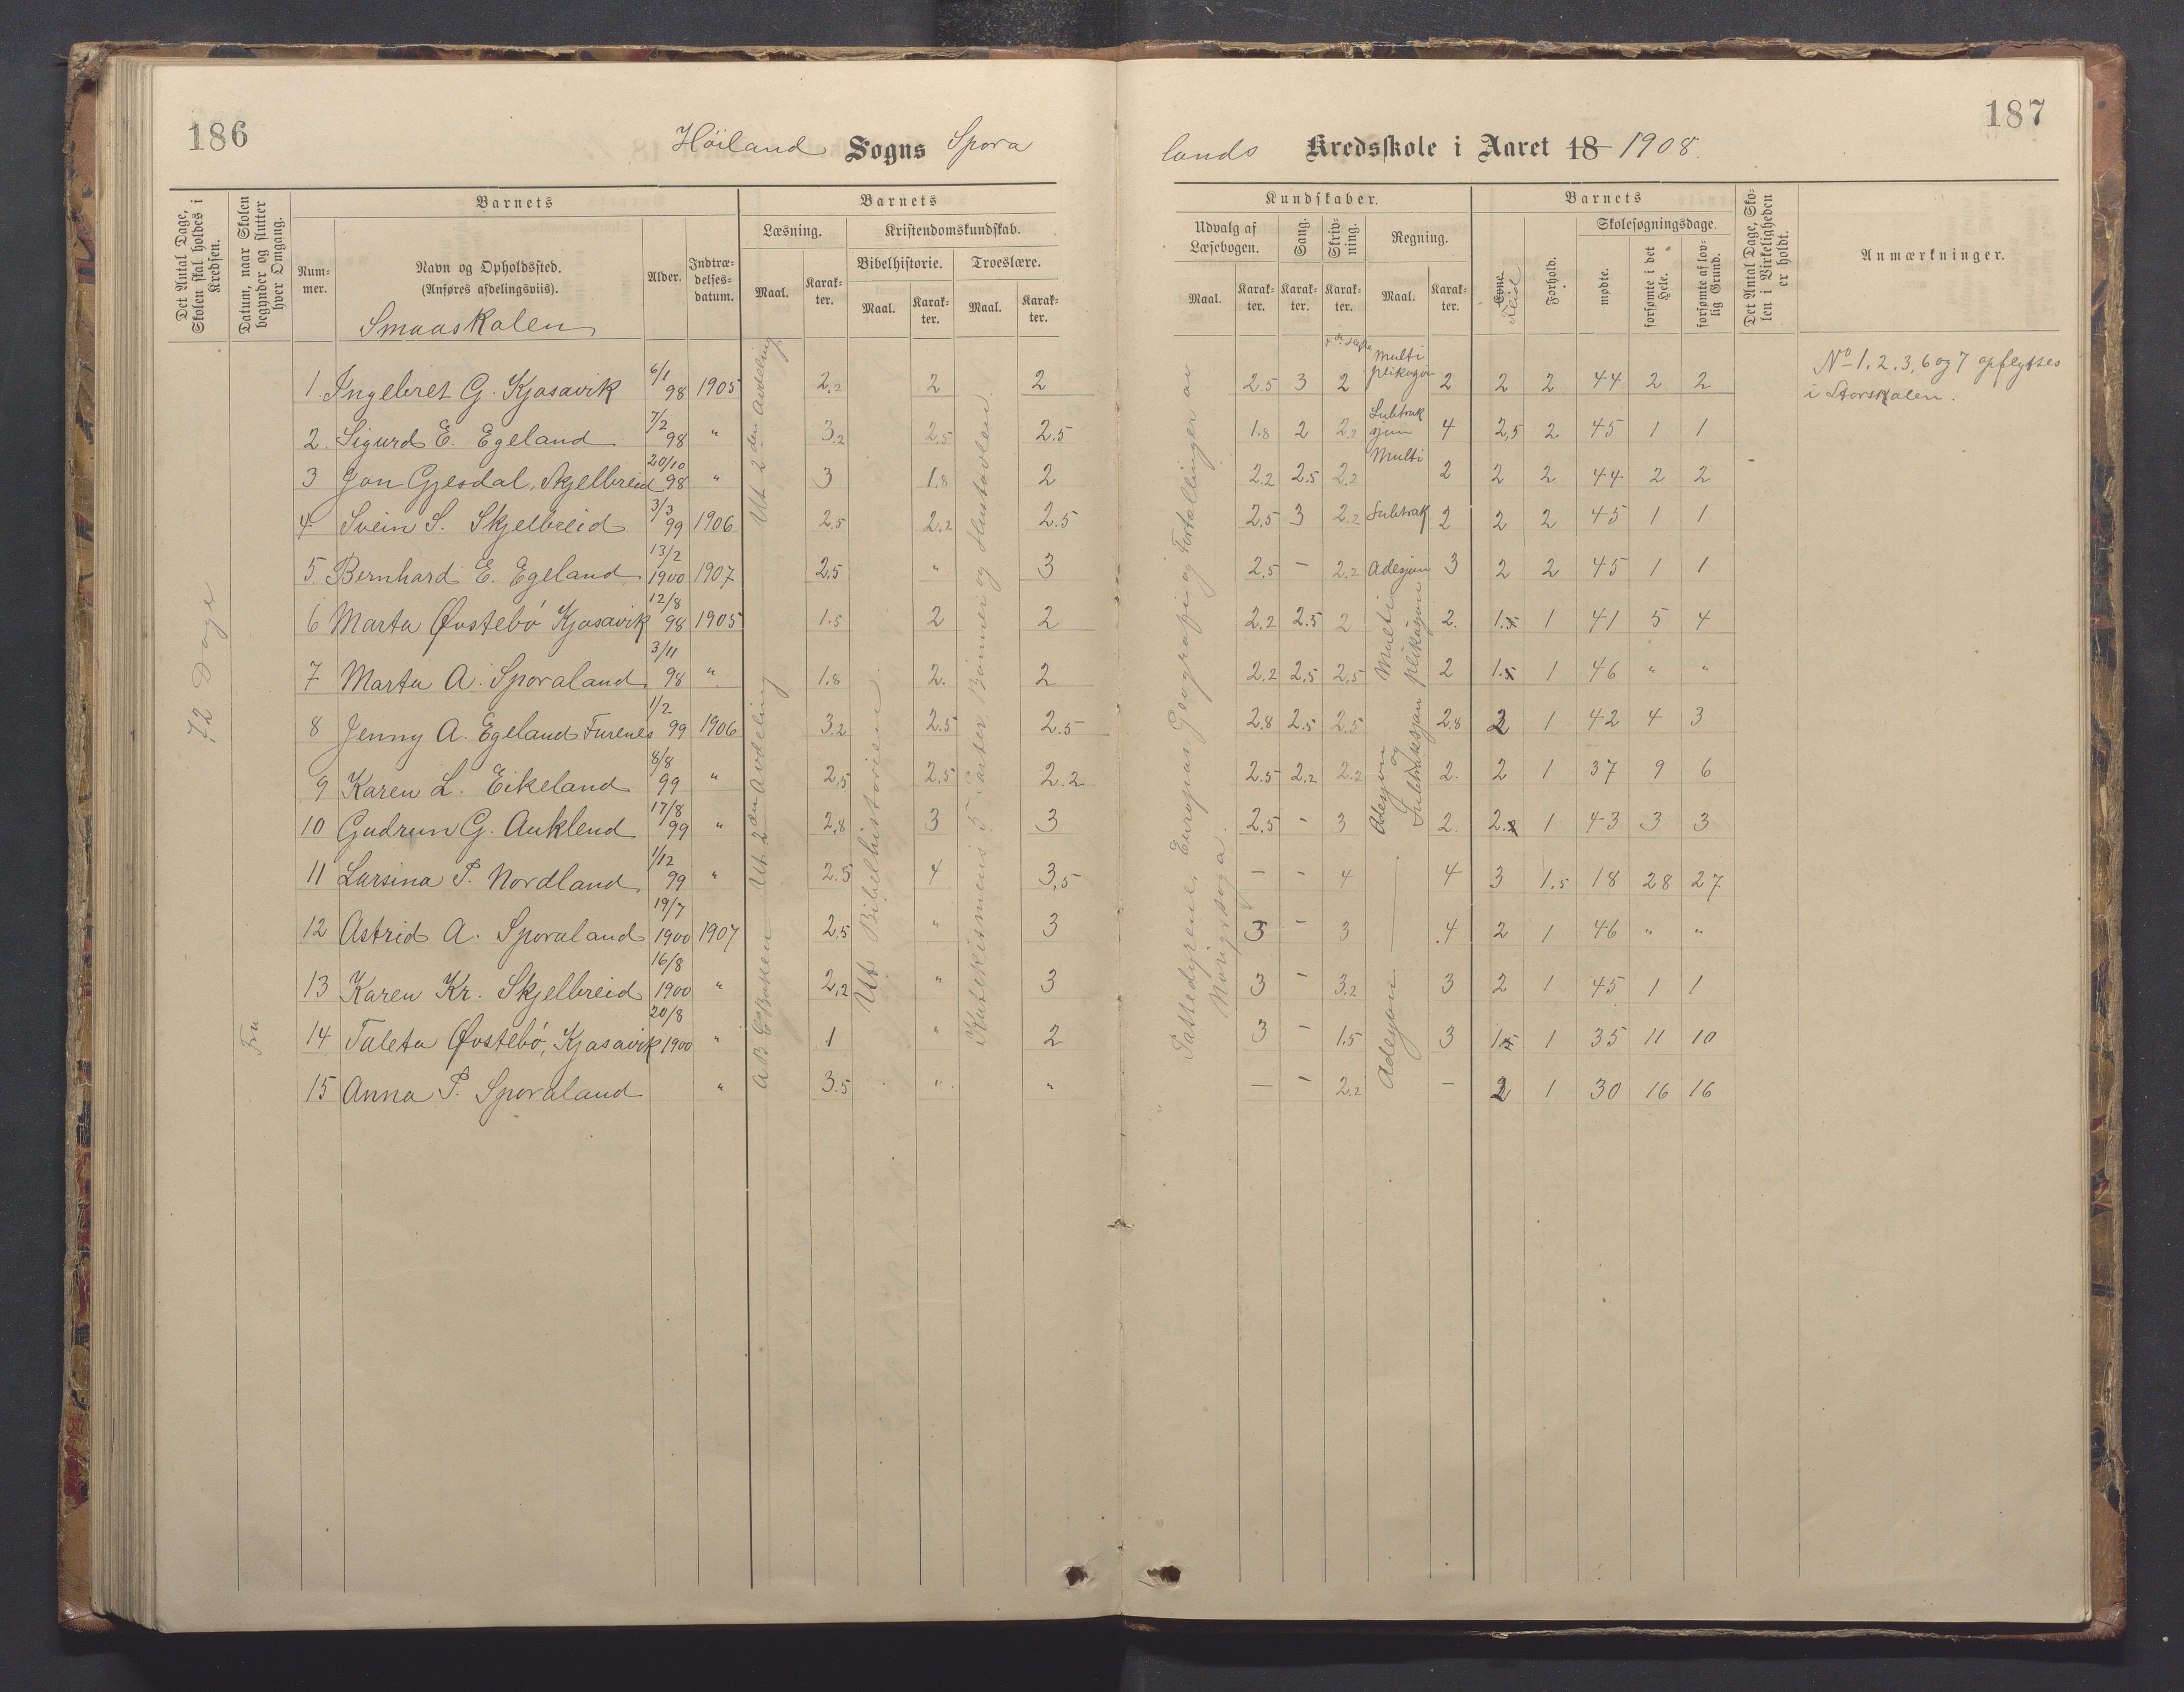 186
Höiland Sogns Spora
Det Antal Dage, Skolen skal holdes i Kredsen.
Datum, naar Skolen begynder og slutter hver Omgang.
Barnets
Num-mer.
Navn og Opholdssted.
(Anføres afdelingsviis).
Alder.
Indtræ-delses-datum.
Barnets
Læsning.
Kristendomskundskab.
Bibelhistorie.
Troeslære.
Maal.
Karak-ter.
Maal.
Karak-ter.
Maal.
Karak-ter.
Smaaskolen
1. Ingebret G. Kjosavik 6/1 98 1905 2.2 2 2
2. Sigurd E. Egeland 7/2 98 " 3.2 2.5 2.5
3 Jon Gjesdal, Skjelbreid 20/10 98 " 3 1.8 2
4 Svein S. Skjelbreid 3/3 99 1906 2.5 2.2 2.5
5. Bernhard E. Egeland 13/2 1900 1907 2.5 " 3
6 Marta Øvstebö Kjosavik 12/8 98 1905 1.5 2 2
7 Marta A. Sporaland 3/11 98 " 1.8 2. 2
8 Jenny A. Egeland Furenes 1/2 99 1906 3.2 2.5 2.5
9 Karen L. Eikeland 8/8 99 " 2.5 2.5 2.2
10 Gudrun G. Auklend 17/8 99 " 2.8 3 3
11 Larsina P. Nordland 1/12 99 " 2.5 4 3,5
12 Astrid A. Sporaland 19/7 1900 1907 2.5 " 3
13 Karen Kr. Skjelbreid 16/8 1900 " 2.2 " 3
14 Taleta Øvstebö, Kjosavik 20/8 1900 " 1 " 2
15 Anna P. Sporaland " 3.5 " "
72 Dage
Fra
ABC Boken Ut 2den Avdeling
Ut 2den Avdeling
Ut Bibelhistorien.
Katekismens 5 Parter Bönner og Hustavlen
187
lands Kredsskole i Aaret 18 1908.
Kundskaber.
Udvalg af Læsebogen.
Sang.
Skriv-ning.
Regning.
Maal.
Karak-ter.
Karak-ter.
Karak-ter.
Maal.
Karak-ter.
Barnets
Evne
Flid
Forhold.
Skolesøgningsdage.
mødte.
forsømte i det Hele.
forsømte af lov-lig Grund.
Det Antal Dage, Sko-len i Virkeligheden er holdt.
Anmærkninger.
2.5 3 2 Multiplikasjon 2 2 2 44 2 2
No 1. 2. 3, 6 og 7 opflyttes
i Storskolen.
1.8 2 2.2 Subtraksjon 4 2,5 2 45 1 1
2.2 2.5 2.2 Multi 2 2 2 44 2 2
2,5 3 2.2 Subtrak 2 2 2 45 1 1
2,5 – 2.2 Adesjon 3 2 2 45 1 1
2.2 2.5 2 2. 1.5 1 41 5 4
2.2 2,5 2,5 2 1.5 1 46 " "
2.8 2.5 2.5 2.8 2 1 42 4 3
2.5 2.2 2.2 2. 2 1 37 9 6
2,5 ' 3 2. 2. 1 43 3 3
– ' 4 4 3 1.5 18 28 27
3 – 3 .4 2 1 46 " "
3 ' 3.2 3 2 1 45 1 1
3 ' 1.5 3 1 1 35 11 10
– ' 2.2 – 2 1 30 16 16
Pattedyrene, Europas Geografi og Fortællinger av
Norigssoga.
Multiplikasjon
Adesjon og Subtraksjon
Adesjon